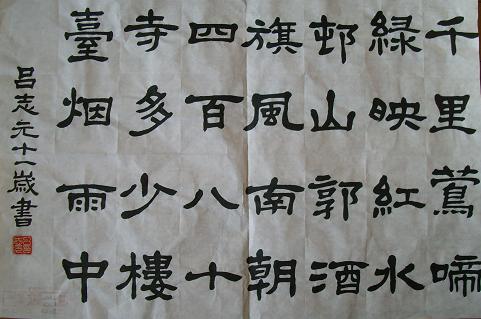 千里鶯啼
緑映紅水
邨山郭酒
旗風南朝
四百八十
寺多少樓
臺烟雨中
吕志元十一歲書